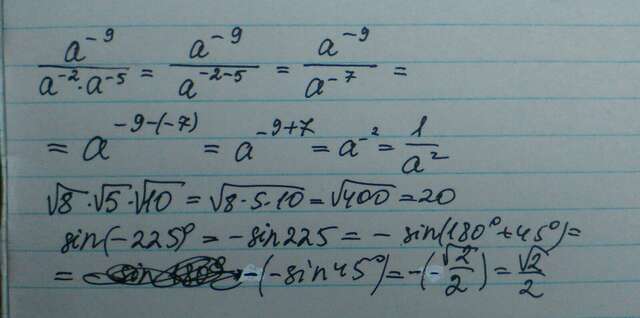 a⁻⁹/(a⁻²·a⁻⁵) = a⁻⁹/a⁻²⁻⁵ = a⁻⁹/a⁻⁷ =
= a⁻⁹⁻⁽⁻⁷⁾ = a⁻⁹⁺⁷ = a⁻² = 1/a²
√8·√5·√10 = √(8·5·10) = √400 = 20
sin(-225°) = -sin225 = -sin(180°+45°) =
= -(-sin45°) = -(-√2/2) = √2/2